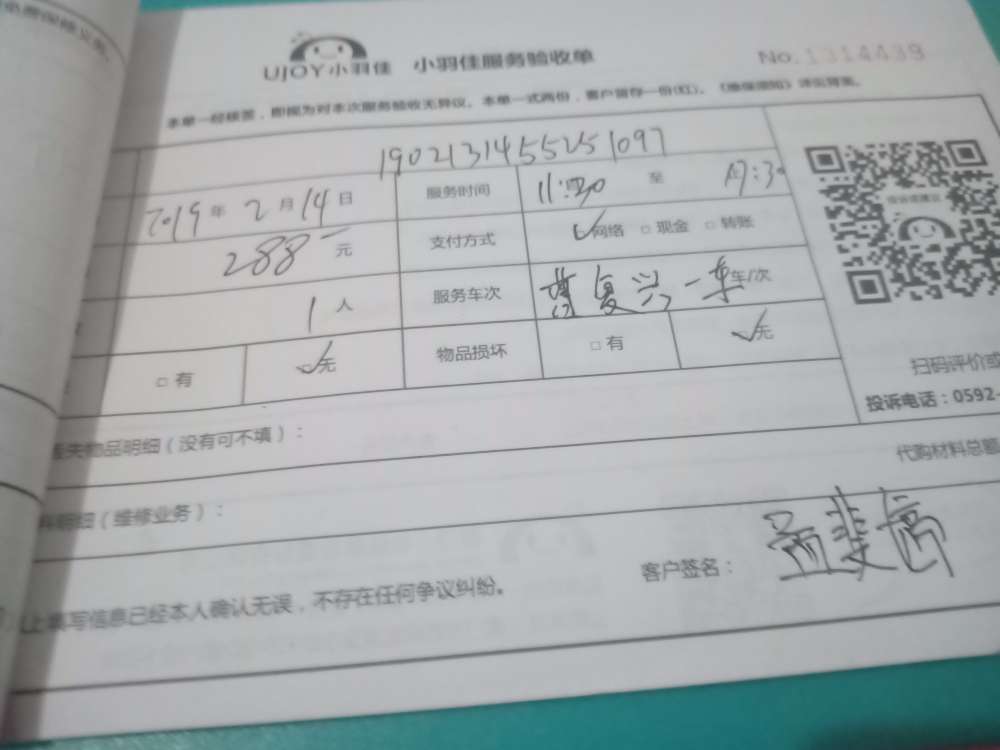 UJOY小羽佳 小羽佳服务验收单 No.1314439
本单一经核签，即视为对本次服务验收无异议。本单一式两份，客户留存一份(红)。
190213145525 1097
2019年2月14日 服务时间 11:30 至 17:30
288元 支付方式 网络 □现金 □转账
1人 服务车次 车/次
□有 无 物品损坏 □有 无
扫码评价或
投诉电话：0592-
失物品明细（没有可不填）：
代购材料总额
料明细（维修业务）：
客户签名：
上填写信息已经本人确认无误，不存在任何争议纠纷。